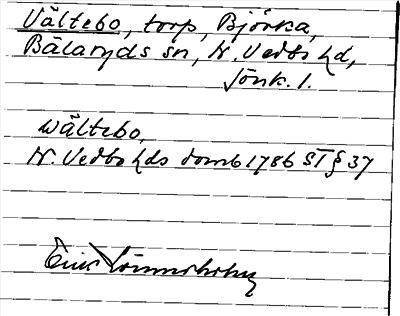 Vältebo, torp, Björka,
Bälaryds sn, N. Vedbo hd,
Jönk. l.
Wältebo,
N. Vedbo hds domb 1786 ST § 37
Erik